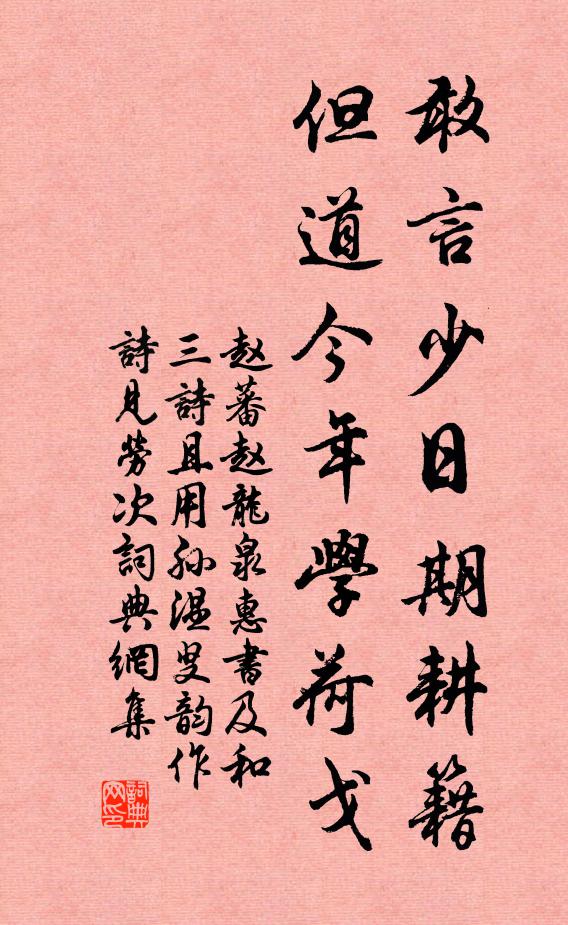 敢言少日期耕籍
但道今年學荷戈
赵蕃赵龍泉惠書及和
三詩且用孙温叟韵作
詩見勞次詞典網集
詞典网印